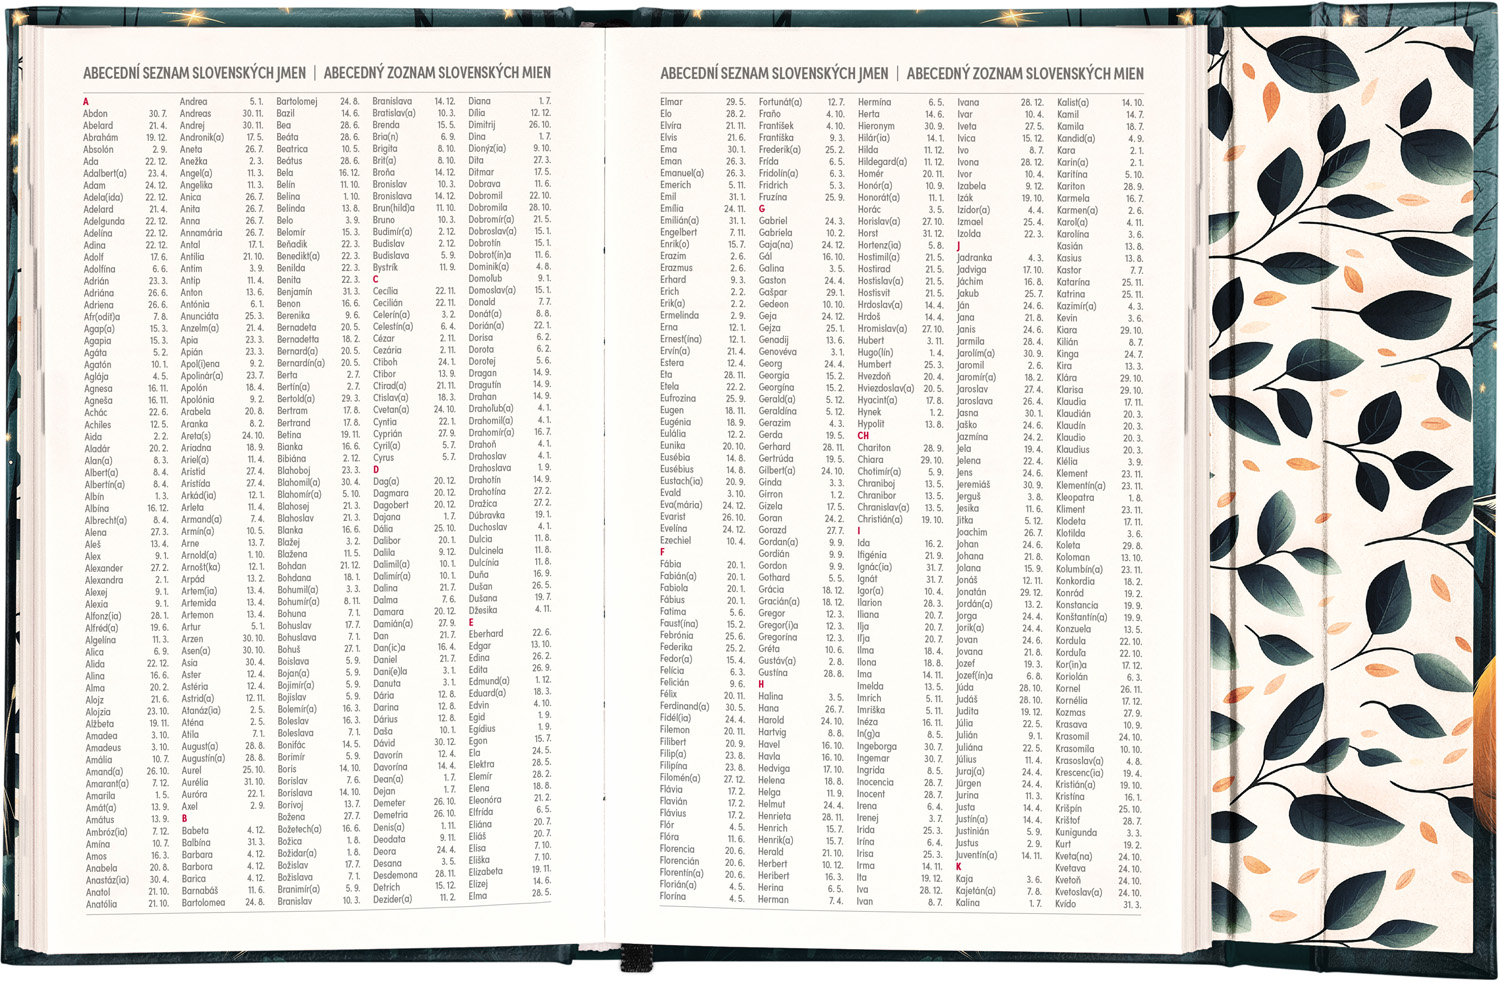 ABECEDNÍ SEZNAM SLOVENSKÝCH JMEN | ABECEDNÝ ZOZNAM SLOVENSKÝCH MIEN
A
Abdon 30. 7.
Abelard 21. 4.
Abrahám 19. 12.
Absolón 2. 9.
Ada 22. 12.
Adalbert(a) 23. 4.
Adam 24. 12.
Adela(ida) 22. 12.
Adelard 21. 4.
Adelgunda 22. 12.
Adelína 22. 12.
Adina 22. 12.
Adolf 17. 6.
Adolfína 6. 6.
Adrián 23. 3.
Adriána 26. 6.
Adriena 26. 6.
Afr(odit)a 7. 8.
Agap(a) 15. 3.
Agapia 15. 3.
Agáta 5. 2.
Agatón 10. 1.
Aglája 4. 5.
Agnesa 16. 11.
Agneša 16. 11.
Achác 22. 6.
Achiles 12. 5.
Aida 2. 2.
Aladár 20. 2.
Alan(a) 8. 3.
Albert(a) 8. 4.
Albertín(a) 8. 4.
Albín 1. 3.
Albína 16. 12.
Albrecht(a) 8. 4.
Alena 27. 3.
Aleš 13. 4.
Alex 9. 1.
Alexander 27. 2.
Alexandra 2. 1.
Alexej 9. 1.
Alexia 9. 1.
Alfonz(ia) 28. 1.
Alfréd(a) 19. 6.
Algelína 11. 3.
Alica 6. 9.
Alida 22. 12.
Alina 16. 6.
Alma 20. 2.
Alojz 21. 6.
Alojzia 23. 10.
Alžbeta 19. 11.
Amadea 3. 10.
Amadeus 3. 10.
Amália 10. 7.
Amand(a) 26. 10.
Amarant(a) 7. 12.
Amarila 1. 5.
Amát(a) 13. 9.
Amátus 13. 9.
Ambróz(ia) 7. 12.
Amína 10. 7.
Amos 16. 3.
Anabela 20. 8.
Anastáz(ia) 30. 4.
Anatol 21. 10.
Anatólia 21. 10.
Andrea 5. 1.
Andreas 30. 11.
Andrej 30. 11.
Andronik(a) 17. 5.
Aneta 26. 7.
Anežka 2. 3.
Angel(a) 11. 3.
Angelika 11. 3.
Anica 26. 7.
Anita 26. 7.
Anna 26. 7.
Annamária 26. 7.
Antal 17. 1.
Antilia 21. 10.
Antim 3. 9.
Antip 11. 4.
Anton 13. 6.
Antónia 6. 1.
Anunciáta 25. 3.
Anzelm(a) 21. 4.
Apia 23. 3.
Apián 23. 3.
Apol(i)ena 9. 2.
Apolinár(a) 23. 7.
Apolón 18. 4.
Apolónia 9. 2.
Arabela 20. 8.
Aranka 8. 2.
Areta(s) 24. 10.
Ariadna 18. 9.
Ariel(a) 11. 4.
Aristid 27. 4.
Aristída 27. 4.
Arkád(ia) 12. 1.
Arleta 11. 4.
Armand(a) 7. 4.
Armín(a) 10. 5.
Arne 13. 7.
Arnold(a) 1. 10.
Arnošt(ka) 12. 1.
Arpád 13. 2.
Artem(ia) 13. 4.
Artemida 13. 4.
Artemon 13. 4.
Artur 5. 1.
Arzen 30. 10.
Asen(a) 30. 10.
Asia 30. 4.
Aster 12. 4.
Astéria 12. 4.
Astrid(a) 12. 11.
Atanáz(ia) 2. 5.
Aténa 2. 5.
Atila 7. 1.
August(a) 28. 8.
Augustín(a) 28. 8.
Aurel 25. 10.
Aurélia 31. 10.
Auróra 22. 1.
Axel 2. 9.
B
Babeta 4. 12.
Balbína 31. 3.
Barbara 4. 12.
Barbora 4. 12.
Barica 4. 12.
Barnabáš 11. 6.
Bartolomea 24. 8.
Bartolomej 24. 8.
Bazil 14. 6.
Bea 28. 6.
Beáta 28. 6.
Beatrica 10. 5.
Beátus 28. 6.
Bela 16. 12.
Belín 11. 10.
Belína 1. 10.
Belinda 13. 8.
Belo 3. 9.
Belomír 15. 3.
Beňadik 22. 3.
Benedikt(a) 22. 3.
Benilda 22. 3.
Benita 22. 3.
Benjamín 31. 3.
Benon 16. 6.
Berenika 9. 6.
Bernadeta 20. 5.
Bernadetta 18. 2.
Bernard(a) 20. 5.
Bernardín(a) 20. 5.
Berta 2. 7.
Bertín(a) 2. 7.
Bertold(a) 29. 3.
Bertram 17. 8.
Bertrand 17. 8.
Betina 19. 11.
Bianka 16. 6.
Bibiána 2. 12.
Blahoboj 23. 3.
Blahomil(a) 30. 4.
Blahomír(a) 5. 10.
Blahosej 21. 3.
Blahoslav 21. 3.
Blanka 16. 6.
Blažej 3. 2.
Blažena 11. 5.
Bohdan 21. 12.
Bohdana 18. 1.
Bohumil(a) 3. 3.
Bohumír(a) 8. 11.
Bohuna 7. 1.
Bohuslav 17. 7.
Bohuslava 7. 1.
Bohuš 27. 1.
Boislava 5. 9.
Bojan(a) 5. 9.
Bojimír(a) 5. 9.
Bojislav 5. 9.
Bolemír(a) 16. 3.
Boleslav 16. 3.
Boleslava 7. 1.
Bonifác 14. 5.
Borimír 5. 9.
Boris 14. 10.
Borislav 7. 6.
Borislava 14. 10.
Borivoj 13. 7.
Božena 27. 7.
Božetech(a) 16. 6.
Božica 1. 8.
Božidar(a) 1. 8.
Božislav 17. 7.
Božislava 7. 1.
Branimír(a) 5. 9.
Branislav 10. 3.
Branislava 14. 12.
Bratislav(a) 10. 3.
Brenda 15. 5.
Bria(n) 6. 9.
Brigita 8. 10.
Brit(a) 8. 10.
Broňa 14. 12.
Bronislav 10. 3.
Bronislava 14. 12.
Brun(hild)a 11. 10.
Bruno 10. 3.
Budimír(a) 2. 12.
Budislav 2. 12.
Budislava 5. 9.
Bystrík 11. 9.
C
Cecília 22. 11.
Cecilián 22. 11.
Celerín(a) 3. 2.
Celestín(a) 6. 4.
Cézar 2. 11.
Cezária 2. 11.
Ctiboh 24. 1.
Ctibor 13. 9.
Ctirad(a) 21. 11.
Ctislav(a) 18. 3.
Cvetan(a) 24. 10.
Cyntia 22. 1.
Cyprián 27. 9.
Cyril(a) 5. 7.
Cyrus 5. 7.
D
Dag(a) 20. 12.
Dagmara 20. 12.
Dagobert 20. 12.
Dajana 1. 7.
Dália 25. 10.
Dalibor 20. 1.
Dalila 9. 12.
Dalimil(a) 10. 1.
Dalimír(a) 10. 1.
Dalina 21. 7.
Dalma 7. 6.
Damara 20. 12.
Damián(a) 27. 9.
Dan 21. 7.
Dan(ic)a 16. 4.
Daniel 21. 7.
Dani(e)la 3. 1.
Danuta 3. 1.
Dária 12. 8.
Darina 12. 8.
Dárius 12. 8.
Daša 10. 1.
Dávid 30. 12.
Davorín 12. 4.
Davorína 14. 4.
Dean(a) 1. 7.
Dejan 1. 7.
Demeter 26. 10.
Demetria 26. 10.
Denis(a) 1. 7.
Deodata 9. 11.
Deora 24. 4.
Desana 3. 5.
Desdemona 28. 11.
Detrich 15. 12.
Dezider(a) 11. 2.
Diana 1. 7.
Dília 12. 12.
Dimitrij 26. 10.
Dina 1. 7.
Dionýz(ia) 9. 10.
Dita 27. 3.
Ditmar 17. 5.
Dobrava 11. 6.
Dobromil 22. 10.
Dobromila 28. 10.
Dobromír(a) 21. 5.
Dobroslav(a) 15. 1.
Dobrotín 15. 1.
Dobrot(ín)a 11. 6.
Dominik(a) 4. 8.
Domoľub 9. 1.
Domoslav(a) 15. 1.
Donald 7. 7.
Donát(a) 8. 8.
Dorián(a) 22. 1.
Dorisa 6. 2.
Dorota 6. 2.
Dorotej 5. 6.
Dragan 14. 9.
Dragutín 14. 9.
Drahan 14. 9.
Draholub(a) 4. 1.
Drahomil(a) 4. 1.
Drahomír(a) 16. 7.
Drahoň 4. 1.
Drahoslav 4. 1.
Drahoslava 1. 9.
Drahotín 14. 9.
Drahotína 27. 2.
Dražica 27. 2.
Dúbravka 19. 1.
Duchoslav 4. 1.
Dulcia 11. 8.
Dulcinela 11. 8.
Dulcínia 11. 8.
Duňa 16. 9.
Dušan 26. 5.
Dušana 19. 7.
Džesika 4. 11.
E
Eberhard 22. 6.
Edgar 13. 10.
Edina 26. 2.
Edita 26. 9.
Edmund(a) 1. 12.
Eduard(a) 18. 3.
Edvin 4. 10.
Egid 1. 9.
Egídius 1. 9.
Egon 15. 7.
Ela 24. 5.
Elektra 28. 5.
Elemír 28. 2.
Elena 18. 8.
Eleonóra 21. 2.
Elfrída 6. 5.
Eliána 20. 7.
Eliáš 20. 7.
Elisa 7. 10.
Eliška 7. 10.
Elizabeta 19. 11.
Elizej 14. 6.
Elma 28. 5.
ABECEDNÍ SEZNAM SLOVENSKÝCH JMEN | ABECEDNÝ ZOZNAM SLOVENSKÝCH MIEN
Elmar 29. 5.
Elo 28. 2.
Elvíra 21. 11.
Elvis 21. 6.
Ema 30. 1.
Eman 26. 3.
Emanuel(a) 26. 3.
Emerich 5. 11.
Emil 31. 1.
Emília 24. 11.
Emilián(a) 31. 1.
Engelbert 7. 11.
Enrik(o) 15. 7.
Erazim 2. 6.
Erazmus 2. 6.
Erhard 9. 3.
Erich 2. 2.
Erik(a) 2. 2.
Ermelinda 2. 9.
Erna 12. 1.
Ernest(ína) 12. 1.
Ervín(a) 21. 4.
Estera 12. 4.
Eta 28. 11.
Etela 22. 2.
Eufrozina 25. 9.
Eugen 18. 11.
Eugénia 18. 9.
Eulália 12. 2.
Eunika 20. 10.
Eusébia 14. 8.
Eusébius 14. 8.
Eustach(ia) 20. 9.
Evald 3. 10.
Eva(mária) 24. 12.
Evarist 26. 10.
Evelína 24. 12.
Ezechiel 10. 4.
F
Fábia 20. 1.
Fabián(a) 20. 1.
Fabiola 20. 1.
Fábius 20. 1.
Fatima 5. 6.
Faust(ína) 15. 2.
Febrónia 25. 6.
Federika 25. 2.
Fedor(a) 15. 4.
Felícia 6. 3.
Felicián 9. 6.
Félix 20. 11.
Ferdinand(a) 30. 5.
Fidél(ia) 24. 4.
Filemon 20. 11.
Filibert 20. 9.
Filip(a) 23. 8.
Filipína 23. 8.
Filomén(a) 27. 12.
Flávia 17. 2.
Flavián 17. 2.
Flávius 17. 2.
Flór 4. 5.
Flóra 11. 6.
Florencia 20. 6.
Florencián 20. 6.
Florentín(a) 20. 6.
Florián(a) 4. 5.
Florína 4. 5.
Fortunát(a) 12. 7.
Fraňo 4. 10.
František 4. 10.
Františka 9. 3.
Frederik(a) 25. 2.
Frída 6. 5.
Fridolín(a) 6. 3.
Fridrich 5. 3.
Fruzína 25. 9.
G
Gabriel 24. 3.
Gabriela 10. 2.
Gaja(na) 24. 12.
Gál 16. 10.
Galina 3. 5.
Gaston 24. 4.
Gašpar 29. 1.
Gedeon 10. 10.
Geja 24. 12.
Gejza 25. 1.
Genadij 13. 6.
Genovéva 3. 1.
Georg 24. 4.
Georgia 15. 2.
Georgína 15. 2.
Gerald(a) 5. 12.
Geraldína 5. 12.
Gerazim 4. 3.
Gerda 19. 5.
Gerhard 28. 11.
Gertrúda 19. 5.
Gilbert(a) 24. 10.
Ginda 3. 3.
Gírron 1. 2.
Gizela 17. 5.
Goran 24. 2.
Gorazd 27. 7.
Gordan(a) 9. 9.
Gordián 9. 9.
Gordon 9. 9.
Gothard 5. 5.
Grácia 18. 12.
Gracián(a) 18. 12.
Gregor 12. 3.
Gregor(i)a 12. 3.
Gregorína 12. 3.
Gréta 10. 6.
Gustáv(a) 2. 8.
Gustína 28. 8.
H
Halina 3. 5.
Hana 26. 7.
Harold 24. 10.
Hartvig 8. 8.
Havel 16. 10.
Havla 16. 10.
Hedviga 17. 10.
Helena 18. 8.
Helga 11. 9.
Helmut 24. 4.
Henrieta 28. 11.
Henrich 15. 7.
Henrik(a) 15. 7.
Herald 21. 10.
Herbert 10. 12.
Heribert 16. 3.
Herina 6. 5.
Herman 7. 4.
Hermína 6. 5.
Herta 14. 6.
Hieronym 30. 9.
Hilár(ia) 14. 1.
Hilda 11. 12.
Hildegard(a) 11. 12.
Homér 20. 11.
Honór(a) 10. 9.
Honorát(a) 11. 1.
Horác 3. 5.
Horislav(a) 27. 10.
Horst 31. 12.
Hortenz(ia) 5. 8.
Hostimil(a) 21. 5.
Hostirad 21. 5.
Hostislav(a) 21. 5.
Hostisvit 21. 5.
Hrdoslav(a) 14. 4.
Hrdoš 14. 4.
Hromislav(a) 27. 10.
Hubert 3. 11.
Hugo(lín) 1. 4.
Humbert 25. 3.
Hvezdoň 20. 4.
Hviezdoslav(a) 20. 5.
Hyacint(a) 17. 8.
Hynek 1. 2.
Hypolit 13. 8.
CH
Chariton 28. 9.
Chiara 29. 10.
Chotimír(a) 5. 9.
Chraniboj 13. 5.
Chranibor 13. 5.
Chranislav(a) 13. 5.
Christián(a) 19. 10.
I
Ida 16. 2.
Ifigénia 21. 9.
Ignác(ia) 31. 7.
Ignát 31. 7.
Igor(a) 10. 4.
Ilarion 28. 3.
Iliana 20. 7.
Ilja 20. 7.
Iľja 20. 7.
Ilma 18. 4.
Ilona 18. 8.
Ima 14. 11.
Imelda 13. 5.
Imrich 5. 11.
Imriška 5. 11.
Inéza 16. 11.
In(g)a 8. 5.
Ingeborga 30. 7.
Ingemar 30. 7.
Ingrida 8. 5.
Inocencia 28. 7.
Inocent 28. 7.
Irena 6. 4.
Irenej 3. 7.
Irida 25. 3.
Irína 6. 4.
Irisa 25. 3.
Irma 14. 11.
Ita 19. 12.
Iva 28. 12.
Ivan 8. 7.
Ivana 28. 12.
Ivar 10. 4.
Iveta 27. 5.
Ivica 15. 12.
Ivo 8. 7.
Ivona 28. 12.
Ivor 10. 4.
Izabela 9. 12.
Izák 19. 10.
Izidor(a) 4. 4.
Izmael 25. 4.
Izolda 22. 3.
J
Jadranka 4. 3.
Jadviga 17. 10.
Jáchim 16. 8.
Jakub 25. 7.
Ján 24. 6.
Jana 21. 8.
Janis 24. 6.
Jarmila 28. 4.
Jarolím(a) 30. 9.
Jaromil 2. 6.
Jaromír(a) 18. 2.
Jaroslav 27. 4.
Jaroslava 26. 4.
Jasna 30. 1.
Jaško 24. 6.
Jazmína 24. 2.
Jela 19. 4.
Jelena 22. 4.
Jens 24. 6.
Jeremiáš 30. 9.
Jerguš 3. 8.
Jesika 11. 6.
Jitka 5. 12.
Joachim 26. 7.
Johan 24. 6.
Johana 21. 8.
Jolana 15. 9.
Jonáš 12. 11.
Jonatán 29. 12.
Jordán(a) 13. 2.
Jorga 24. 4.
Jorik(a) 24. 4.
Jovan 24. 6.
Jovana 21. 8.
Jozef 19. 3.
Jozef(ín)a 6. 8.
Júda 28. 10.
Judáš 28. 10.
Judita 19. 12.
Júlia 22. 5.
Julián 9. 1.
Juliána 22. 5.
Július 11. 4.
Juraj(a) 24. 4.
Jürgen 24. 4.
Jurina 11. 3.
Justa 14. 4.
Justín(a) 14. 4.
Justínián 5. 9.
Justus 2. 9.
Juventín(a) 14. 11.
K
Kaja 3. 6.
Kajetán(a) 7. 8.
Kalina 1. 7.
Kalist(a) 14. 10.
Kamil 14. 7.
Kamila 18. 7.
Kandid(a) 4. 9.
Kara 2. 1.
Karin(a) 2. 1.
Karitína 5. 10.
Kariton 28. 9.
Karmela 16. 7.
Karmen(a) 2. 6.
Karol(a) 4. 11.
Karolína 3. 6.
Kasián 13. 8.
Kasius 13. 8.
Kastor 7. 7.
Katarína 25. 11.
Katrina 25. 11.
Kazimír(a) 4. 3.
Kevin 3. 6.
Kiara 29. 10.
Kilián 8. 7.
Kinga 24. 7.
Kira 13. 3.
Klára 29. 10.
Klarisa 29. 10.
Klaudia 17. 11.
Klaudián 20. 3.
Klaudín 20. 3.
Klaudio 20. 3.
Klaudius 20. 3.
Klélia 3. 9.
Klement 23. 11.
Klementín(a) 23. 11.
Kleopatra 1. 8.
Kliment 23. 11.
Klodeta 17. 11.
Klotilda 3. 6.
Koleta 29. 8.
Koloman 13. 10.
Kolumbín(a) 23. 11.
Konkordia 18. 2.
Konrád 19. 2.
Konstancia 19. 9.
Konštantín(a) 19. 9.
Konzuela 13. 5.
Kordula 22. 10.
Korduľa 22. 10.
Kor(in)a 17. 12.
Koriolán 6. 3.
Kornel 26. 11.
Kornélia 17. 12.
Kozmas 27. 9.
Krasava 10. 9.
Krasomil 24. 10.
Krasomila 10. 10.
Krasoslav(a) 4. 8.
Krescenc(ia) 19. 4.
Kristián(a) 19. 10.
Kristína 16. 1.
Krišpín 25. 10.
Krištof 28. 7.
Kunigunda 3. 3.
Kurt 19. 2.
Kveta(na) 24. 10.
Kvetava 24. 10.
Kvetoň 24. 10.
Kvetoslav(a) 24. 10.
Kvído 31. 3.